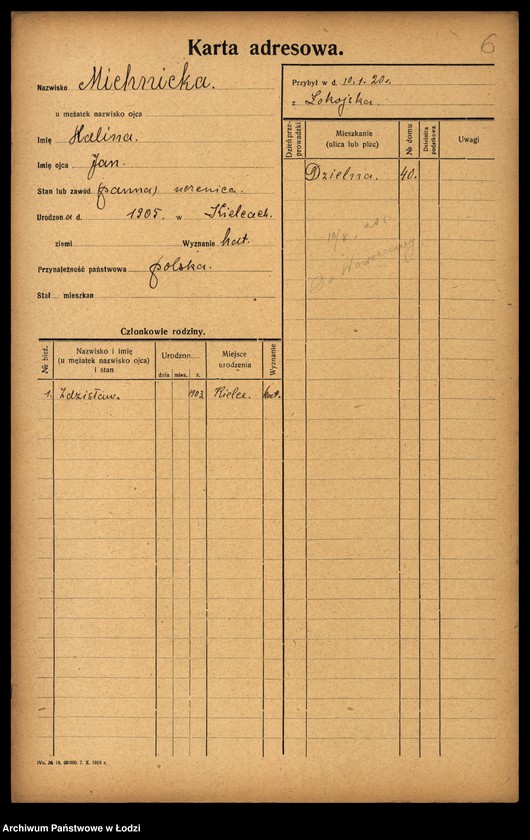 6
Karta adresowa.
Nazwisko Michnicka.
u mężatek nazwisko ojca
Imię Halina.
Imię ojca Jan.
Stan lub zawód (panna) uczenica.
Urodzona d. 1905. w Kielcach.
ziemi Wyznanie kat.
Przynależność państwowa polska.
Stał. mieszkan
Przybył w d. 10.1.20r.
z
Dzień prze-
prowadzki
Mieszkanie
(ulica lub plac)
№ domu
Dzielnica
podatkowa
Uwagi
Dzielna. 40.
Członkowie rodziny.
№ bież.
Nazwisko i imię
(u mężatek nazwisko ojca)
i stan
Urodzon
dnia mies. r.
Miejsce
urodzenia
Wyznanie
1. Zdzisław. 1903 Kielce. kat.
IVa. № 18. 60000. 7. X. 1919 r.
Archiwum Państwowe w Łodzi